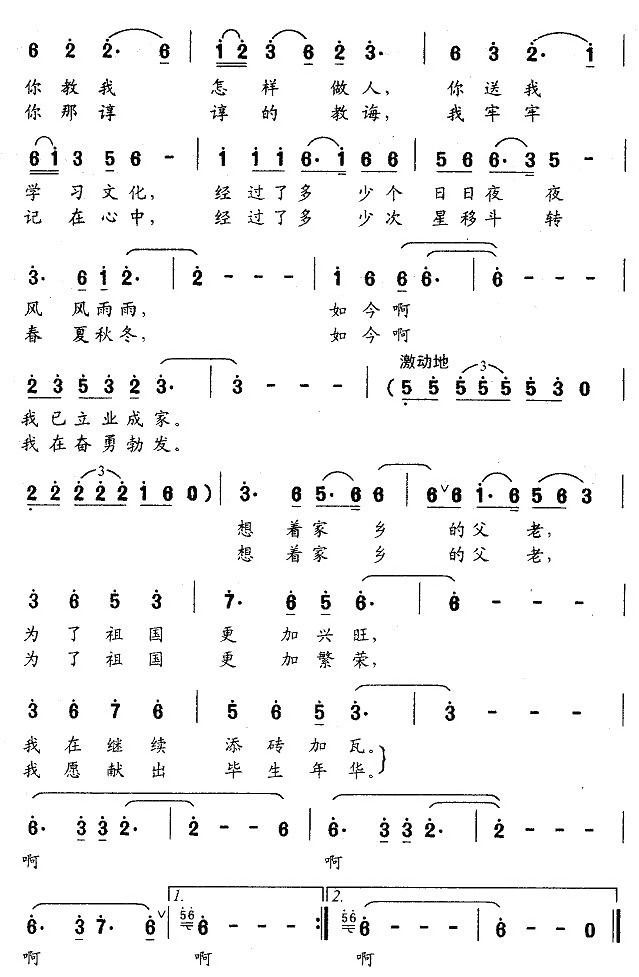 6 2 2· 6 | 1 2 3 6 2 3· | 6 3 2· 1 |
你教我 怎样 做人, 你送我
你那谆 谆的 教诲, 我牢牢
6 1 3 5 6 - | 1 1 1 6· 1 6 6 | 5 6 6· 3 5 |
学习文化, 经过了多 少个 日日夜 夜
记在心中, 经过了多 少次 星移斗 转
3· 6 1 2· | 2 - - - | 1 6 6 6· | 6 - - - |
风 风雨雨, 如今啊
春 夏秋冬, 如今啊
激动地
2 3 5 3 2 3· | 3 - - - | (5 5 5 5 5 5 3 0
我已立业成家。
我在奋勇勃发。
2 2 2 2 2 1 6 0) | 3· 6 5· 6 6 | 6 6 1· 6 5 6 3 |
想 着家 乡 的父 老,
想 着家 乡 的父 老,
3 6 5 3 | 7· 6 5 6· | 6 - - - |
为了祖国 更 加兴旺,
为了祖国 更 加繁荣,
3 6 7 6 | 5 6 5 3· | 3 - - - |
我在继续 添砖加瓦。
我愿献出 毕生年华。
6· 3 3 2· | 2 - - 6 | 6· 3 3 2· | 2 - - - |
啊 啊
1. 2.
6· 3 7· 6 | 56 6 - - - :| 56 6 - - - | 6 - - 0 |
啊 啊 啊